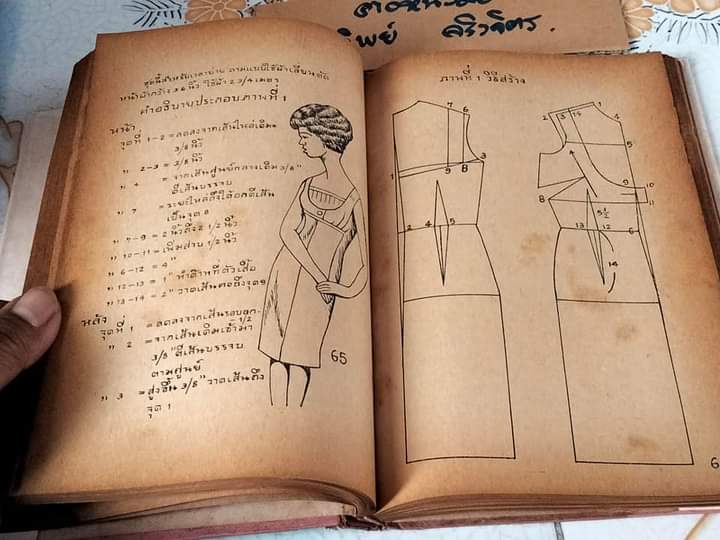 ทิพย์ ศิริจิตร.
ชุดนี้สำหรับเวลาบ่าย ตามแบบใช้ผ้าเลียนตัด
หน้าผ้ากว้าง 36 นิ้ว ใช้ผ้า 2 3/4 เมตร
คำอธิบายประกอบภาพที่ 1
หน้า
จุดที่ 1-2 = ลดลงจากเส้นไหล่เดิม
3/8 นิ้ว
" 2-3 = 3/8 นิ้ว
" 4 = จากเส้นศูนย์กลางเดิม 3/8"
ตีเส้นบรรจบ
" 7 = ระยะไหล่ถึงใต้อกตีเส้น
เป็นจุด 8
" 7-9 = 2 นิ้วถึง 2 1/2 นิ้ว
" 10-11 = เพิ่มส่วน 1/2 นิ้ว
" 6-12 = 4"
" 12-13 = 1" ทำด้านที่ตัวเสื้อ
" 13-14 = 2" วาดเส้นคอถึงจุด 9
หลัง
จุดที่ 1 = ลดลงจากเส้นรอบอก 1/2
" 2 = จากเส้นเดิมเข้ามา
3/8" ตีเส้นบรรจบ
ตามศูนย์
" 3 = สูงขึ้น 3/8" วาดเส้นถึง
จุด 1
65
ภาพที่ 1 วิธีสร้าง
7 6
3
8
9
1
2 4 5
2 3 15 1
4
5
9 10
11
8
5 1/2
13 12 6
14
6